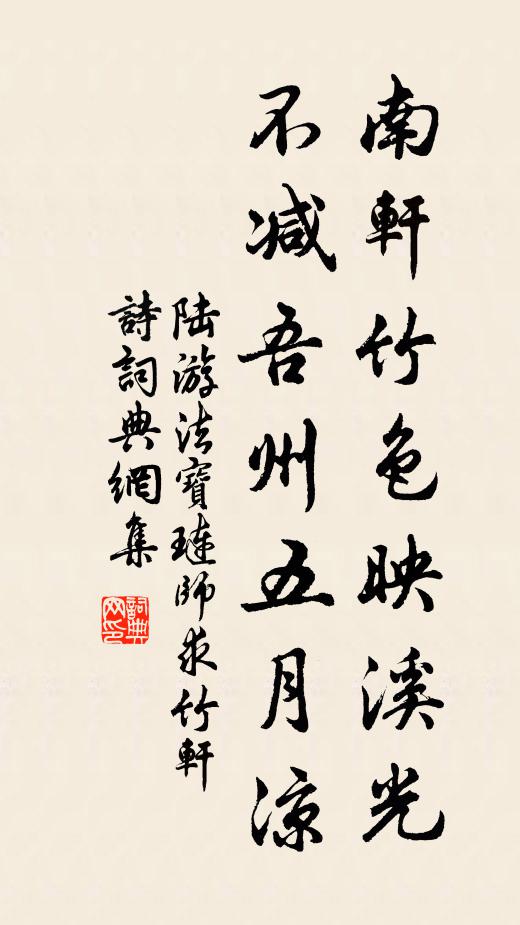 南軒竹色映溪光
不減吾州五月涼
陆游法寶璉師求竹軒
詩詞典網集
詞典网印